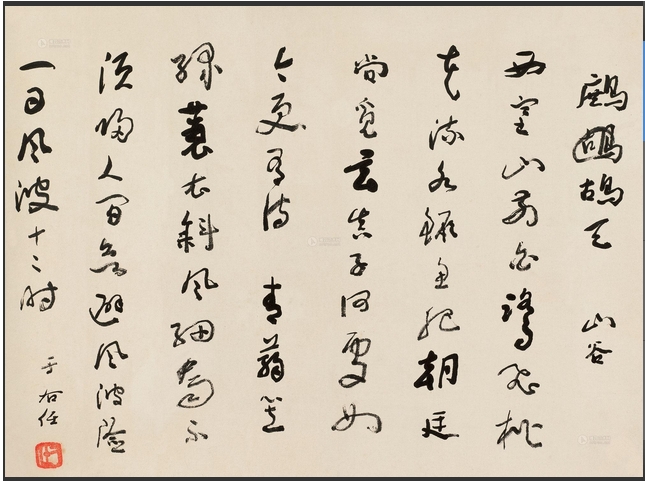 鷓鴣鴣天 山谷
西塞山前白鷺飛桃
花流水鱖魚肥朝廷
尚覓玄真子何處如
今更有詩 青蒻笠
綠蓑衣斜風細雨不
須歸人間欲避風波險
一日風波十二時
于右任